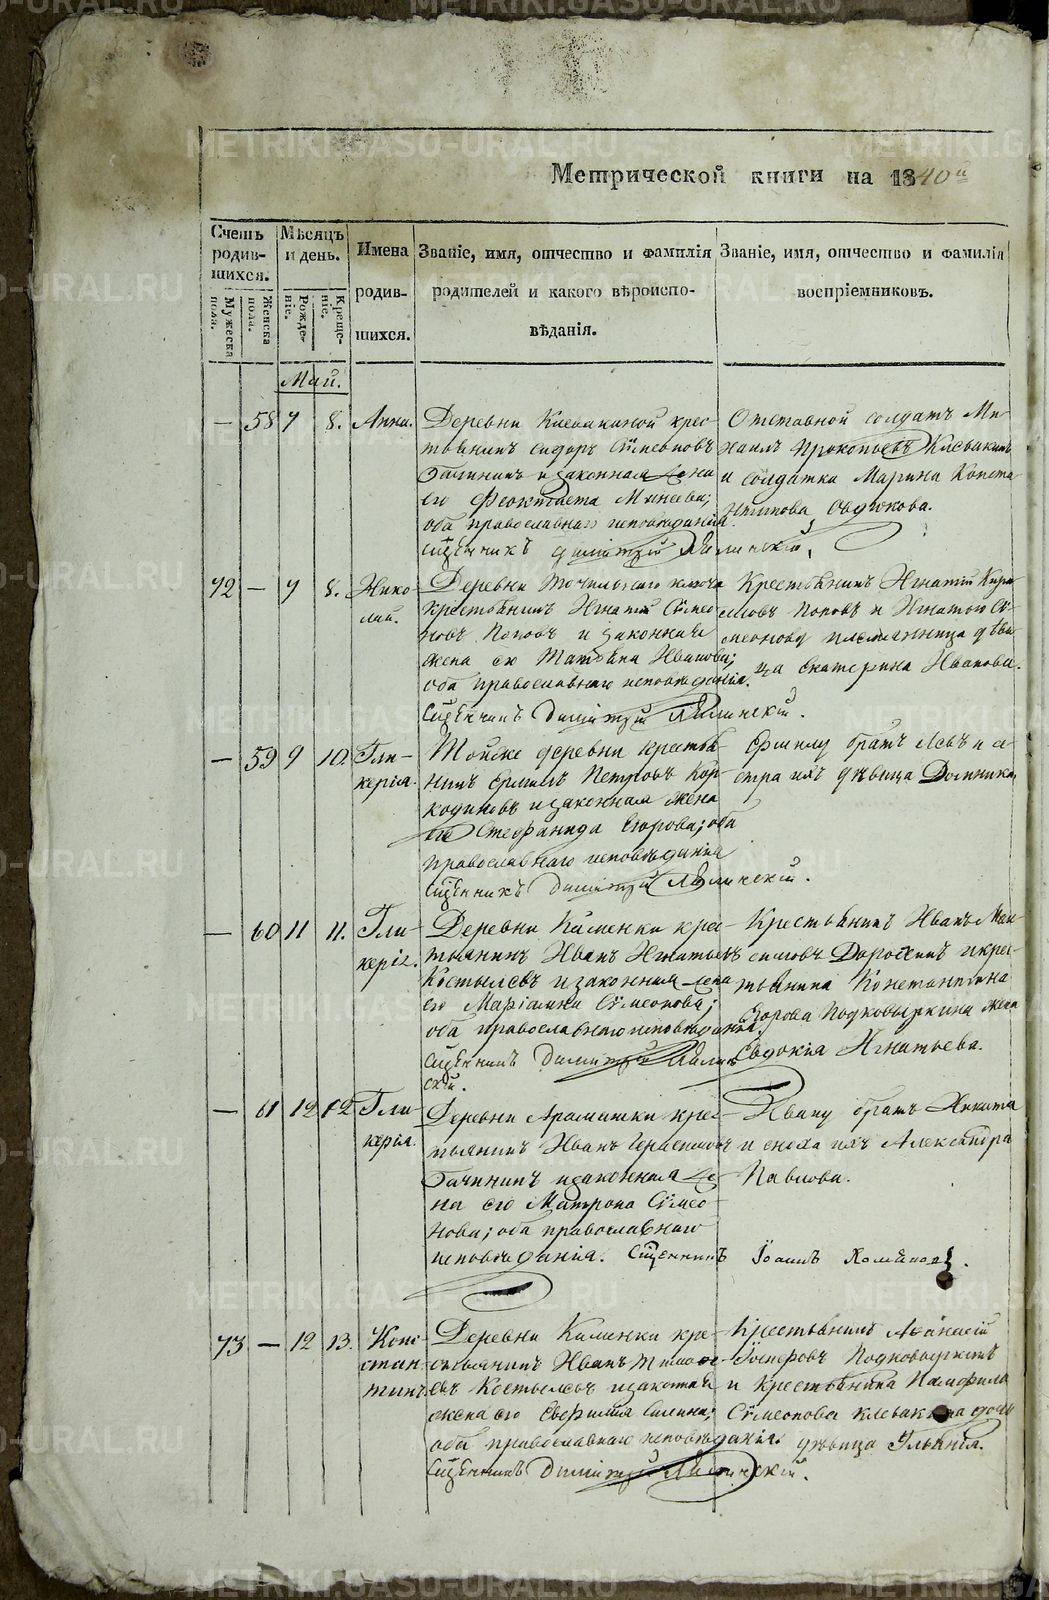 Метрической книги на 1840й
Счетъ родившихся.
Мужеска пола.
Женска пола.
Мѣсяцъ и день.
Рожденіе.
Крещеніе.
Имена родившихся.
Званіе, имя, отчество и фамилія родителей и какого вѣроисповѣданія.
Званіе, имя, отчество и фамилія воспріемниковъ.
Май.
— 58 7 8. Анна.
Деревни Клевакиной крес-
тьянинъ Сидоръ Сѵмеоновъ
и законная жена
его Феоктиста Минеева;
оба православнаго исповѣданія.
Сщенникъ Димитрій
Отставной солдатъ Ми-
хаилъ Прокопьевъ Клевакинъ
и солдатка Марина Конста
нтинова Овдюкова.
72 — 7 8. Нико-
лай.
Деревни Точильнаго ключа
крестьянинъ Игнатій Сѵмео
новъ Поповъ и законная
жена его Татьяна Иванова;
оба православнаго исповѣданія.
Сщенникъ Димитрій
Крестьянинъ Игнатій Кири
ловъ Поповъ и Игнатью Сѵ-
меонову племянница дѣви
ца Екатерина Иванова.
— 59 9 10. Гли-
керія.
Тойже деревни крестья-
нинъ Ермилъ Петровъ Кор-
кодиновъ и законная жена
его Стефанида Егорова; оба
православнаго исповѣданія
Сщенникъ Димитрій
Ермилу братъ Левъ и се
стра ихъ дѣвица Домника.
— 60 11 11. Гли-
керія.
Деревни Каменки крес-
тьянинъ Иванъ Игнатьевъ
Костылевъ и законная жена
его Маріамна Сѵмеонова;
оба православнаго исповѣданія.
Сщенникъ Димитрій
ской.
Крестьянинъ Иванъ
и крес-
тьянина Константина
Егорова Подковыркина жена
Евдокія Игнатьева.
— 61 12 12. Гли-
керія.
Деревни Арамашки крес-
тьянинъ Иванъ Герасимовъ
и законная же-
на его Матрона Сѵмео
нова; оба православнаго
исповѣданія. Сщенникъ Іоаннъ
Ивану братъ Никита
и сноха ихъ Александра
Павлова.
73 — 12 13. Конс-
тан-
тинъ
Деревни Каменки кре-
стьянинъ Иванъ Тимофе-
евъ Костылевъ и законная
жена его Евфимія Силина;
оба православнаго исповѣданія.
Сщенникъ Димитрій
Крестьянинъ Аѳанасій
Подковыркинъ
и крестьянина Памфила
Сѵмеонова Клевакина дочь
дѣвица Ульянія.
METRIKI.GASO-URAL.RU